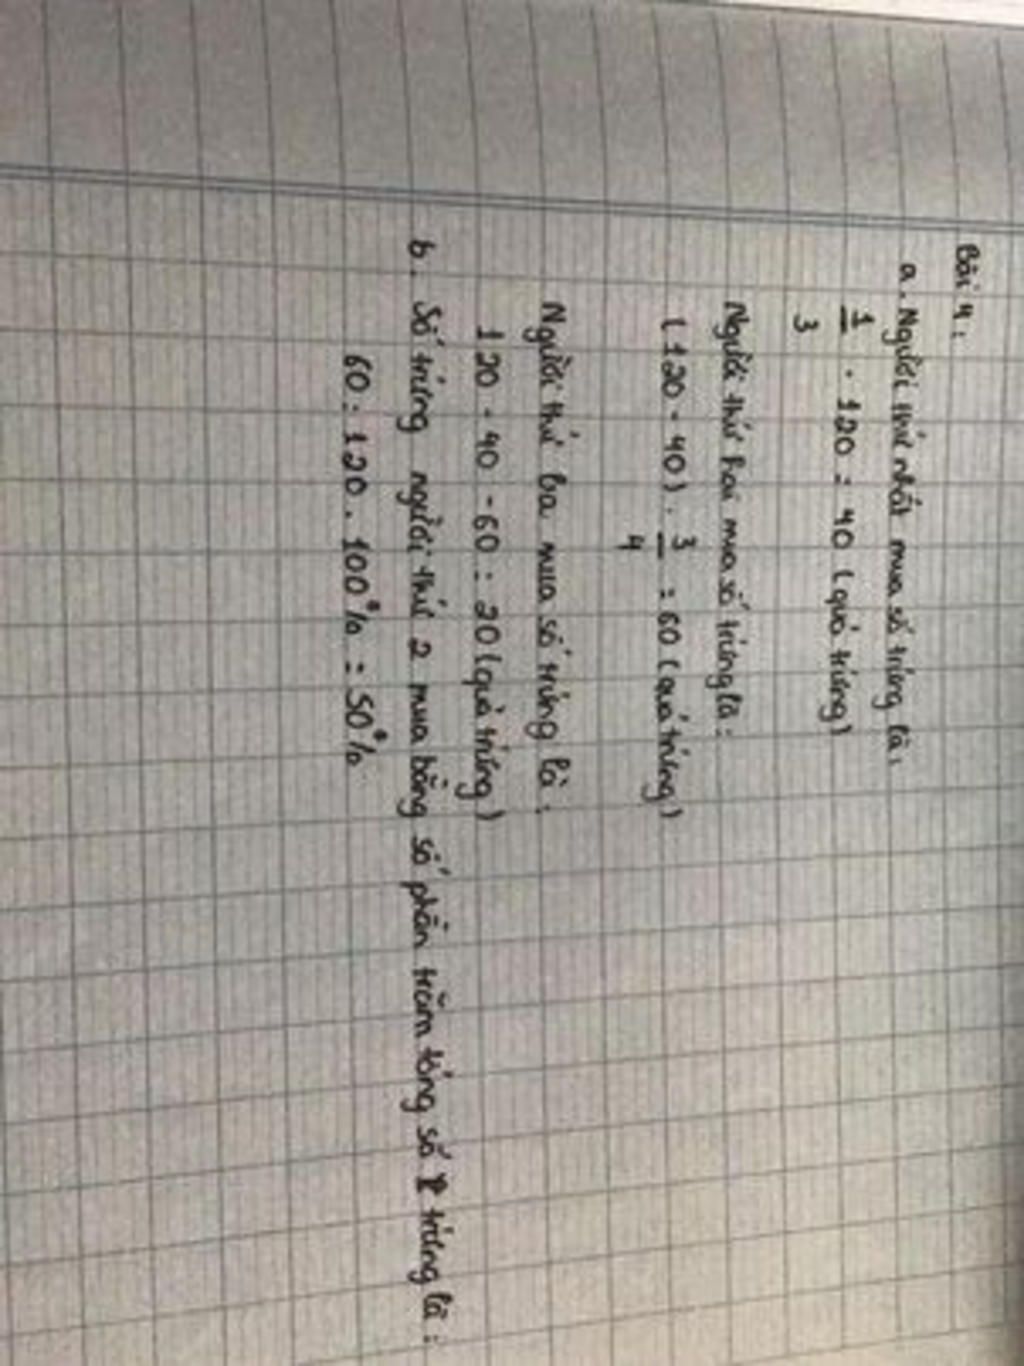 Bài 4:
a. Người thứ nhất mua số trứng là:
1/3 . 120 = 40 (quả trứng)
Người thứ hai mua số trứng là:
(120 - 40) . 3/4 = 60 (quả trứng)
Người thứ ba mua số trứng là:
120 - 40 - 60 = 20 (quả trứng)
b. Số trứng người thứ 2 mua bằng số phần trăm tổng số trứng là:
60 : 120 . 100% = 50%